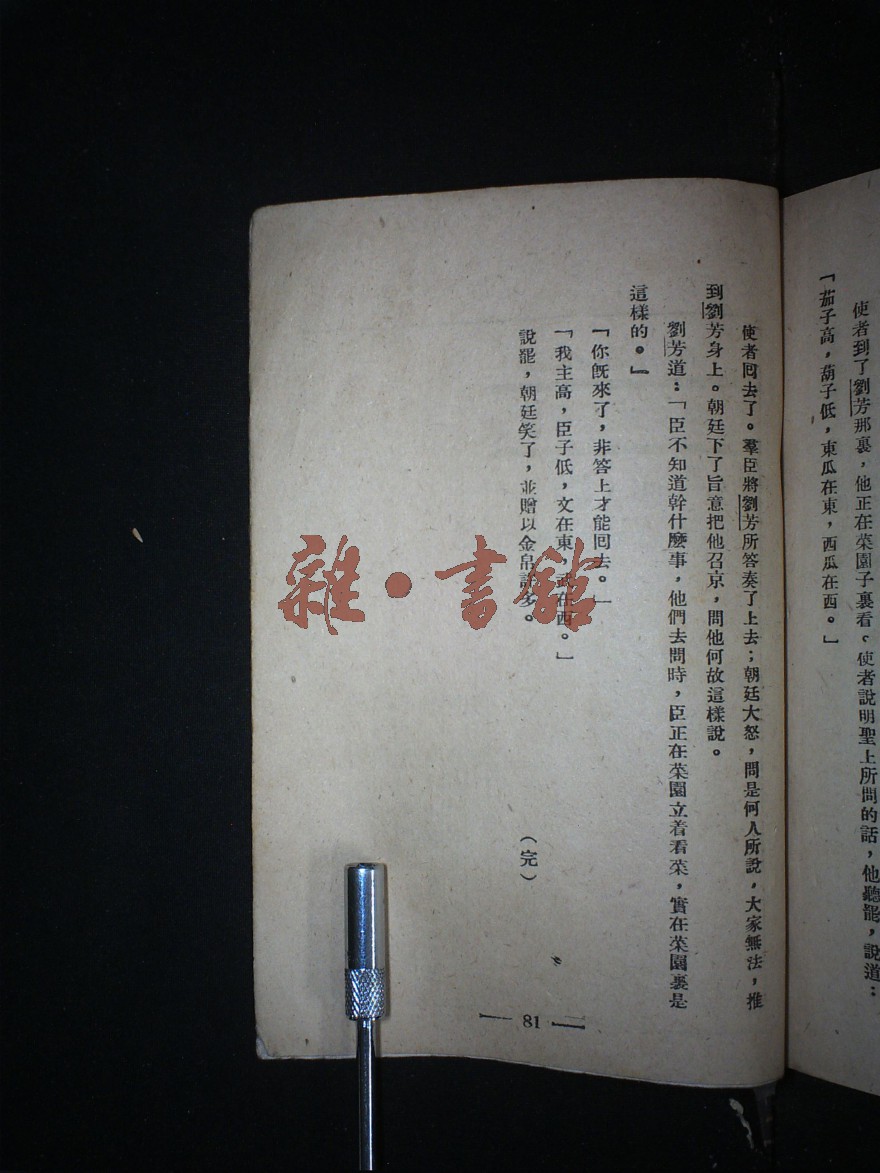 使者到了劉芳那裏，他正在菜園子裏看。使者說明聖上所問的話，他聽罷，說道：
「茄子高，葫子低，東瓜在東，西瓜在西。」
使者回去了。羣臣將劉芳所答奏了上去；朝廷大怒，問是何人所說，大家無法，推
到劉芳身上。朝廷下了旨意把他召京，問他何故這樣說。
劉芳道：「臣不知道幹什麼事，他們去問時，臣正在菜園立着看菜，實在菜園裏是
這樣的。」
「你旣來了，非答上才能回去。」
「我主高，臣子低，文在東，武在西。」
說罷，朝廷笑了，並贈以金帛許多。
（完）
— 81 —
雜·書館